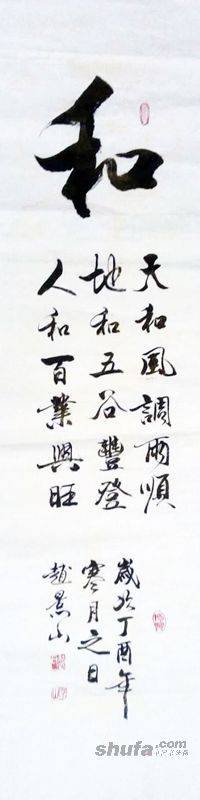 和
天和風調雨順
地和五谷豐登
人和百業興旺
歲次丁酉年
寒月之日
趙景山
shufa.com